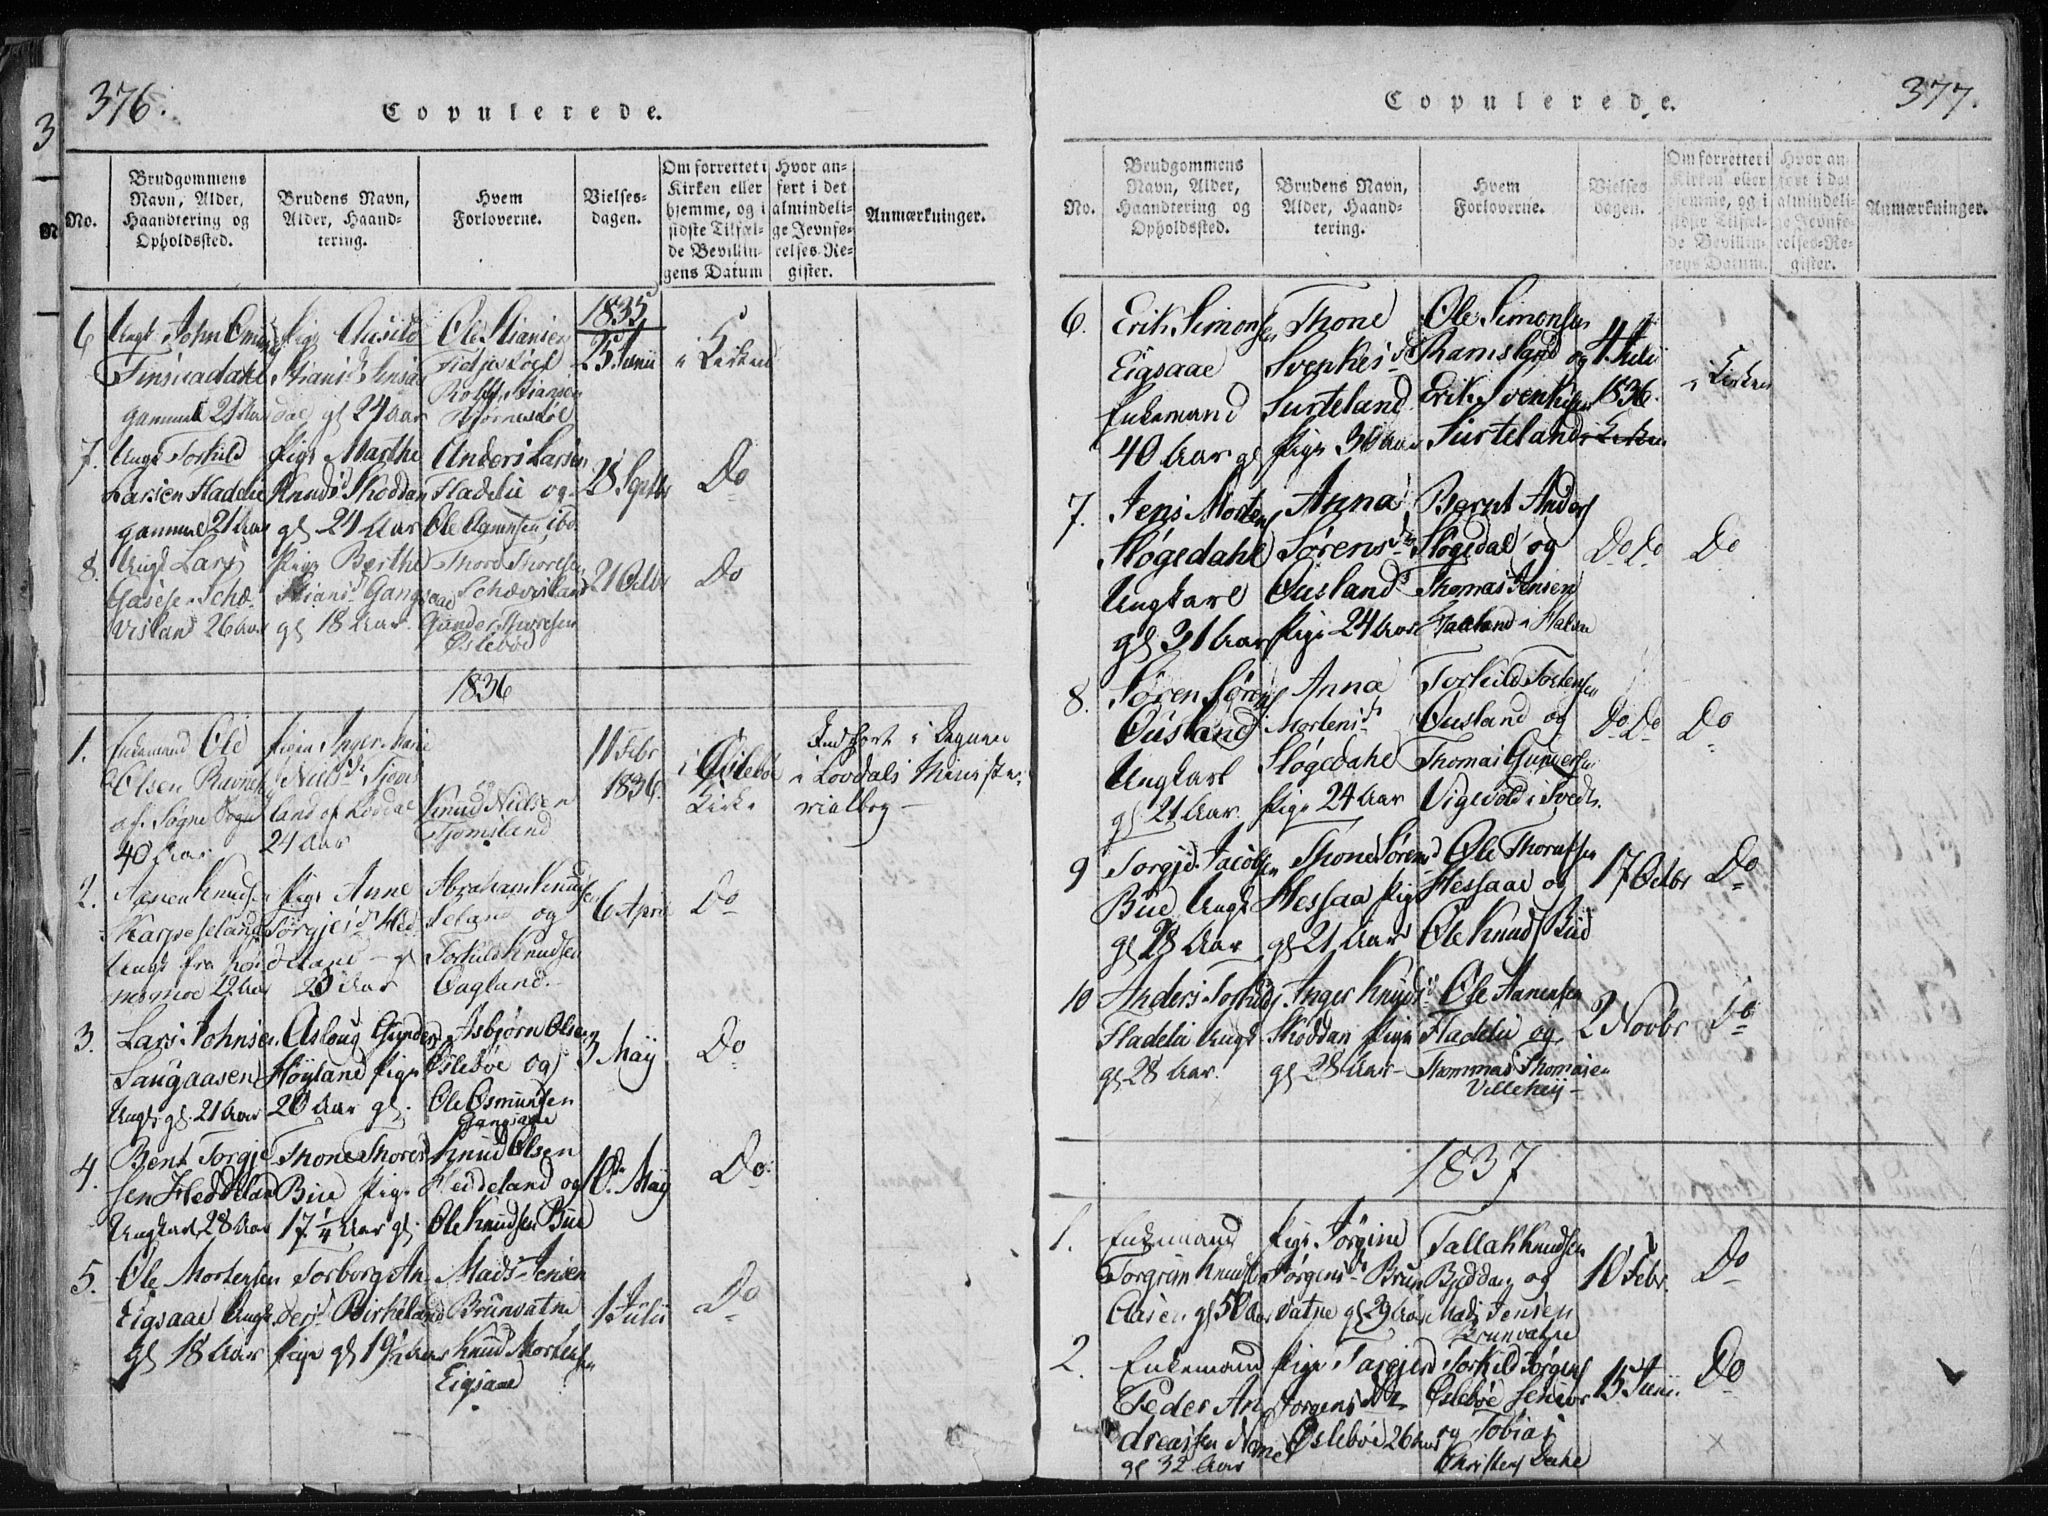 376.
Copulerede.
No.
Brudgommens Navn, Alder, Haandtering og Opholdssted.
Brudens Navn, Alder, Haandtering.
Hvem Forloverne.
Vielses-dagen.
Om forrettet i Kirken eller hjemme, og i sidste Tilfælde Bevillingens Datum
Hvor anført i det almindelige Jevnførelses-Register.
Anmærkninger.
6 Ungk John
Finsaadahl
gammel 21 Aar
Pige
gl 24 Aar
Ole Stiansen
1835
25 Junii
i Kirken
7. Ungk Torkild
Larsen Fladelie
gammel 21 Aar
Pige Marthe
Knudsd Skoddan
gl 24 Aar
Anders Larsen
Fladelie og
Ole Aanensen ibd.
28 Septbr
Do
8. Ungk Lars
26 Aar
Pige Berthe
Stiansd Gangsaae
gl 18 Aar.
Thore Thoresen
Gunder Thoresen
Øslebøe
21 Octbr
Do
1836
1. Enkemand Ole
Olsen
af Søgne Sogn
40 Aar
Pigen Inger Marie
Nielsd Tjomsland
24 Aar
Knud Nielsen
Tjomsland
11 Febr
1836.
i Øslebøe
Kirke
Indført i
i Lovdals Ministerialbog —
2. Aanen Knudsen
Skarpeseland
Ungk fra
Pige Anne
Torgjesd Heddeland — gl
23 Aar
Abraham Knudsen
og
Torkild Knudsen
6 April
Do
3. Lars Johnsen
Laugaasen
Ungk gl. 21 Aar
Asloug Gunders
Høyland Pige
20 Aar gl.
Asbjørn Olsen
Øslebøe og
Ole Osmundsen
Gangsaae
3 Maij
Do
4. Bent Torgjesen Heddeland
Ungkarl 28 Aar
Thone Thores
Büe Pige
17 1/4 Aar gl.
Knud Olsen
Heddeland og
Ole Knudsen Büe
10 Maij
Do
5. Ole Mortensen
Eigsaae Ungk.
gl 18 Aar
Torborg Andersd Birkeland
Pige gl 19 1/2 Aar
Mads Jensen
Brunvatne
Knud Mortensen
Eigsaae
1 Julii
Do
377.
Copulerede.
No.
Brudgommens Navn, Alder, Haandtering og Opholdssted.
Brudens Navn, Alder, Haandtering.
Hvem Forloverne.
Vielses-dagen.
Om forrettet i Kirken eller hjemme, og i sidste Tilfælde Bevillingens Datum.
Hvor anført i det almindelige Jevnførelses-Register.
Anmærkninger.
6. Erik Simonsen
Eigsaae
Enkemand
40 Aar gl
Thone
Svenkesd
Surteland
Pige 36 Aar
Ole Simonsen
Ramsland og
Erik Svenkesen
Surteland
4 Julii
1836.
i Kirken
7. Jens Mortens
Sløgedahl
Ungkarl
gl 31 Aar
Anna
Sørensd
Ousland
Pige 24 Aar
Bernt Anders
Sløgedal og
Thomas Jensen
Faaland i Halse
Do Do
Do
8. Søren Sørens
Ousland
Ungkarl
gl. 21 Aar.
Anna
Mortensd
Sløgedahl
Pige 24 Aar
Torkild Torkelsen
Ousland og
Thomas Gundersen
Vigevold i
Do Do
Do
9 Torgjd Jacobsen
Büe Ungk
gl 28 Aar
Thone Sørensd
Hessaa Pige
gl 21 Aar
Ole
Hessaae og
Ole Knuds Büe
17 Octbr
Do
10 Anders Torkilds
Fladelie Ungk
gl 28 Aar.
Inger Knudsd
Skoddan Pige
gl 28 Aar —
Ole Aanensen
Fladelie og
Thommas Thomasen
2 Novbr
Do
1837
1. Enkemand
Torgrim Knudsen
Aasen gl 50 Aar
Pige Jørgine
Jørgensd Brunvatne gl 29 Aar
Tallak Knudsen
og
Mads Jensen
Brunvatne
10 Febr
Do
2. Enkemand
Peder Andreassen
gl 32 Aar
Pige Targjerd
Jørgensd
Øslebøe 26 Aar
Torkild Jørgens
Øslebøe senior
og Tobias
Christens
15 Junii
Do